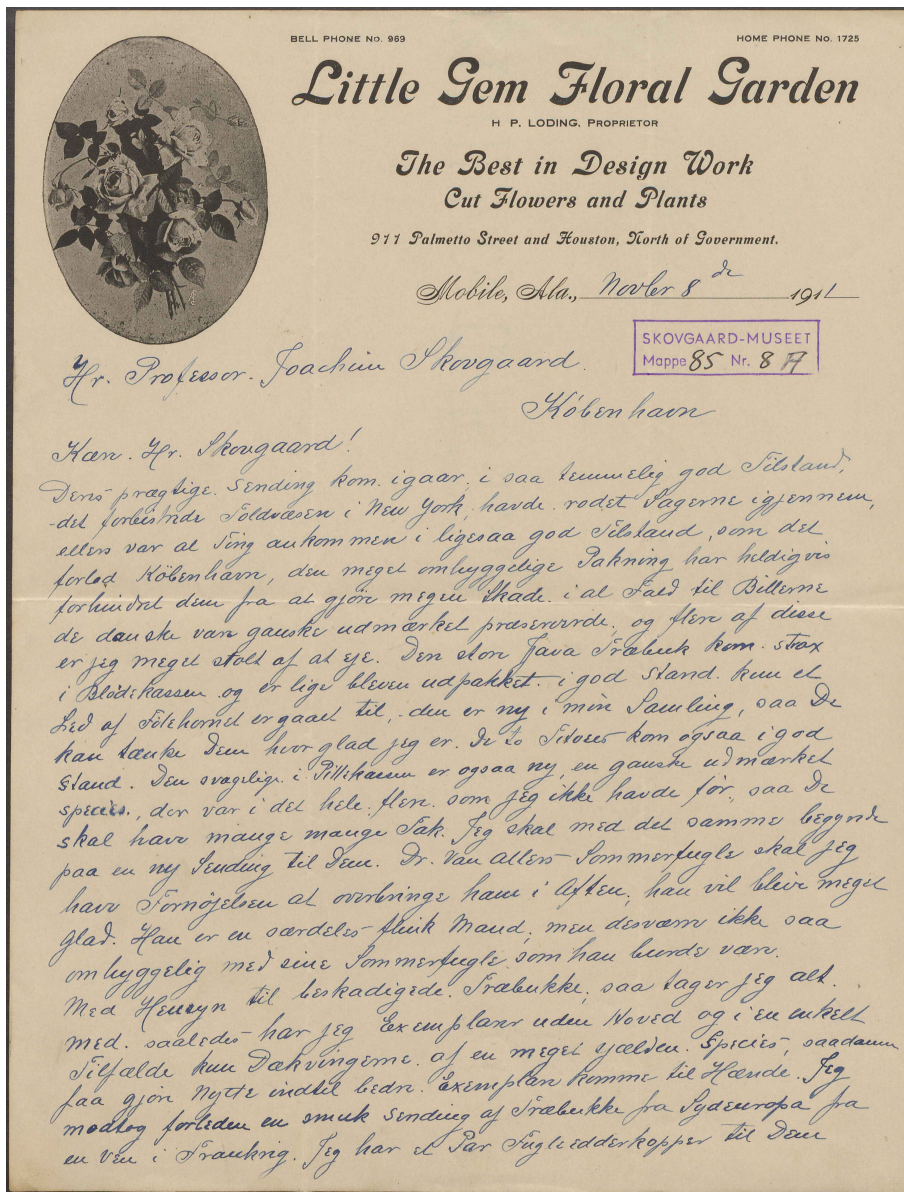 BELL PHONE No. 969
HOME PHONE No. 1725
Little Gem Floral Garden
H P. LODING, PROPRIETOR
The Best in Design Work
Cut Flowers and Plants
911 Palmetto Street and Houston, North of Government.
Mobile, Ala., Novber 8 de 1911
SKOVGAARD-MUSEET
Mappe 85 Nr. 8 A
Hr. Professor. Joachim Skovgaard.
København
Kære. Hr. Skovgaard!
Deres prægtige. Sending kom. igaar, i saa temmelig god Tilstand,
-det forbistrede Toldvæsen i New York, havde. rodet Sagerne igjennem,
ellers var al Ting ankommen i ligesaa god Tilstand, som det
forlod København, den meget omhyggelige Pakning har heldigvis
forhindret dem fra at gjøre megen Skade. i al Fald til Billerne
de danske vare ganske udmærket præserverede, og flere af disse
er jeg meget stolt af at eje. Den store Java Træbuk kom. strax
i Blødekassen og er lige bleven udpakket. i god Stand. kun et
Led af Følehornet er gaaet til, - den er ny i min Samling, saa De
kan tænke Dem hvor glad jeg er. De to kom ogsaa i god
Stand. Den svagelige i Pillekassen er ogsaa ny, en ganske udmærket
species., der var i det hele. flere. som jeg ikke havde før., saa De
skal have mange mange Tak. Jeg skal med det samme begynde
paa en ny Sending til Dem. Dr. Van Allers Sommerfugle skal jeg
have Fornøjelsen at overbringe ham i Aften, han vil blive meget
glad. Han er en særdeles flink Mand, men desværre ikke saa
omhyggelig med sine Sommerfugle som han burde være.
Med Hensyn til beskadigede. Træbukke, saa tager jeg alt.
med. saaledes har jeg Exemplarer uden Hoved og i en enkelt
Tilfælde kun Dækvingerne. af en meget sjælden. Species, saadanne
faa gjøre Nytte indtil bedre. Exemplarer komme til Hænde. Jeg
modtog forleden en smuk Sending af Træbukke fra Sydeuropa fra
en Ven i Frankrig. Jeg har et Par Fugleedderkopper til Dem